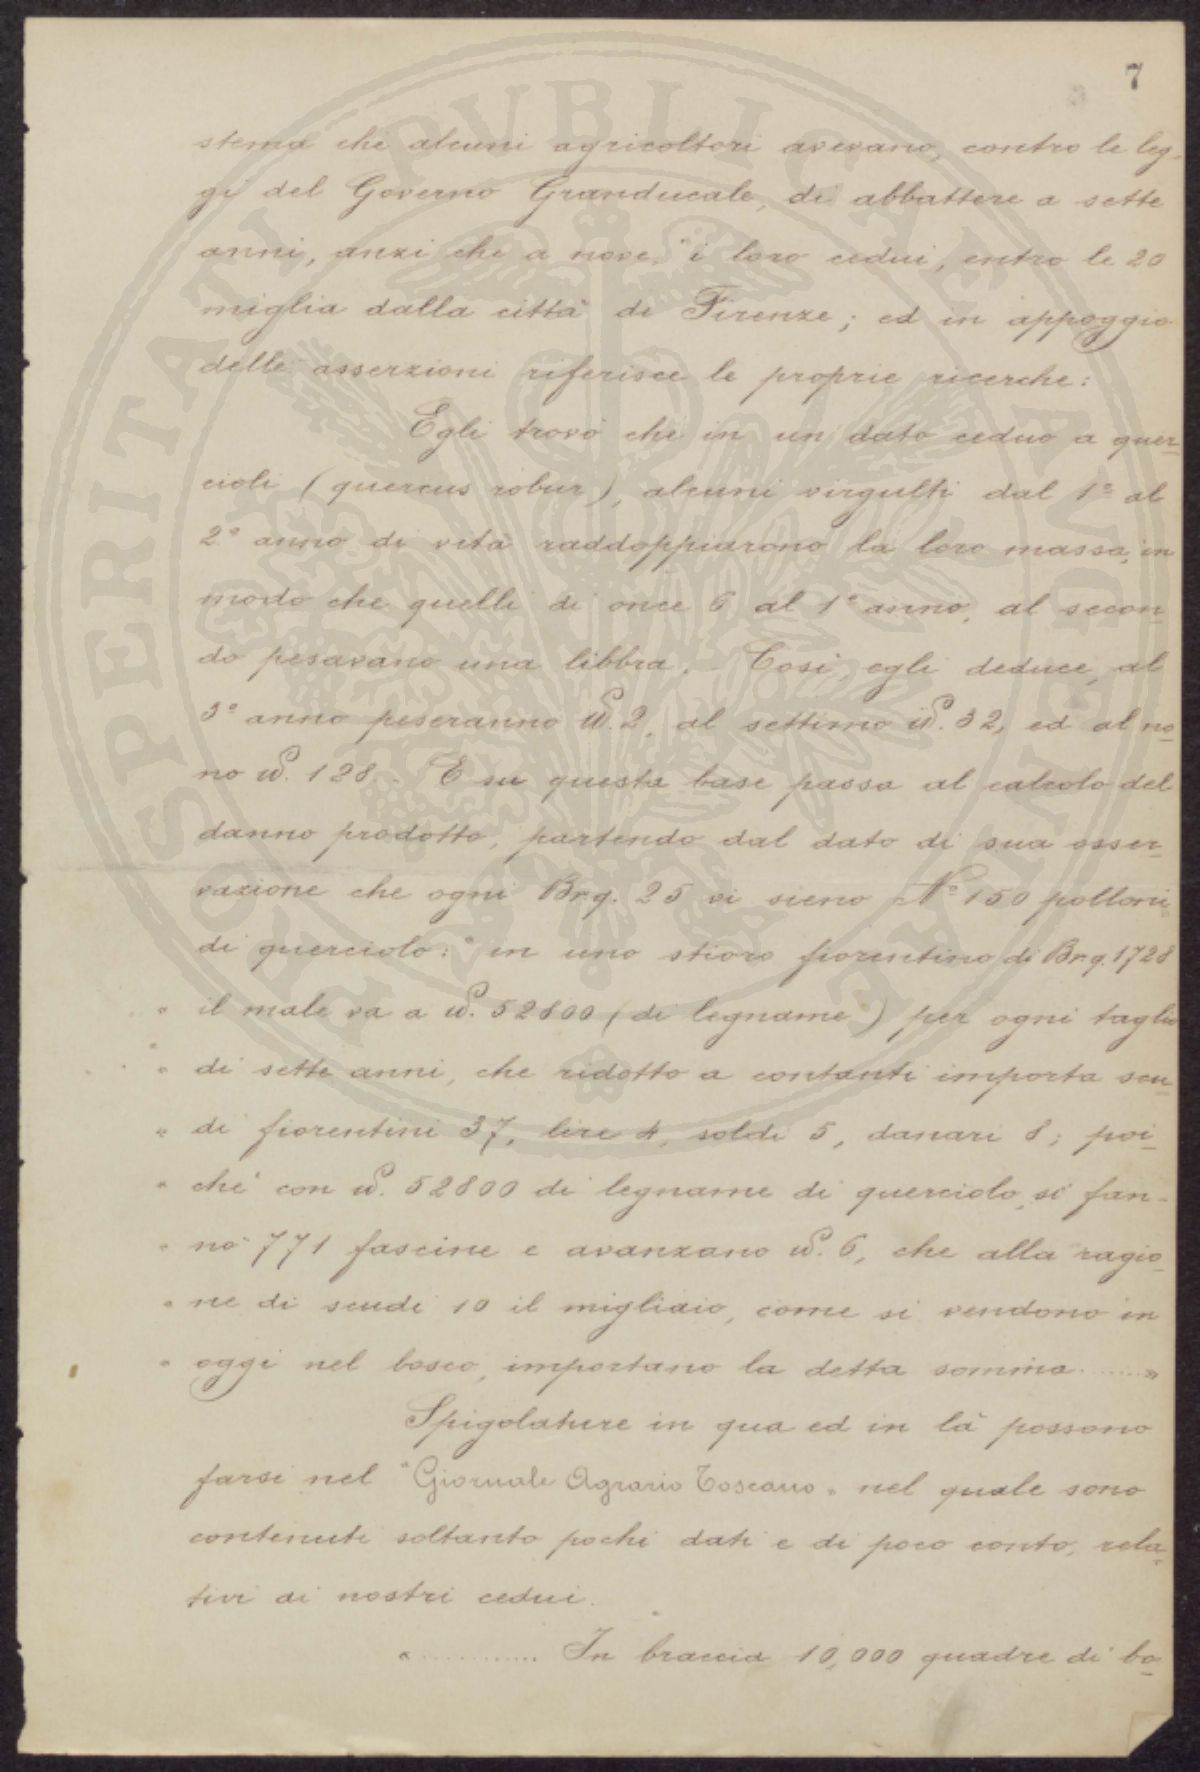 7
stema che alcuni agricoltori avevano, contro le leg-
gi del Governo Granducale, di abbattere a sette
anni, anzi che a nove, i loro cedui, entro le 20
miglia dalla città di Firenze; ed in appoggio
delle asserzioni riferisce le proprie ricerche:
Egli trovò che in un dato ceduo a quer-
cioli (quercus robur), alcuni virgulti dal 1° al
2° anno di vita raddoppiarono la loro massa, in
modo che quelli di once 6 al 1° anno, al secon-
do pesavano una libbra. - Così, egli deduce, al
3° anno peseranno ℔. 2, al settimo ℔. 32, ed al no-
no ℔. 128. - E su questa base passa al calcolo del
danno prodotto, partendo dal dato di sua osser-
vazione che ogni Br.q. 25 vi sieno N° 150 polloni
di querciolo: " in uno stioro fiorentino di Br.q. 1728
" il male va a ℔. 52800 (di legname) per ogni taglio
" di sette anni, che ridotto a contanti importa scu-
" di fiorentini 37, lire 4, soldi 5, danari 8; poi-
" chè con ℔. 52800 di legname di querciolo, si fan-
" no 771 fascine e avanzano ℔. 6, che alla ragio-
" ne di scudi 10 il migliaio, come si vendono in
" oggi nel bosco, importano la detta somma ...... "
Spigolature in qua ed in là possono
farsi nel "Giornale Agrario Toscano" nel quale sono
contenuti soltanto pochi dati e di poco conto, rela-
tivi ai nostri cedui.
" ............ In braccia 10,000 quadre di bo-
PVBLICAE AVGENDAE
PROSPERITATI